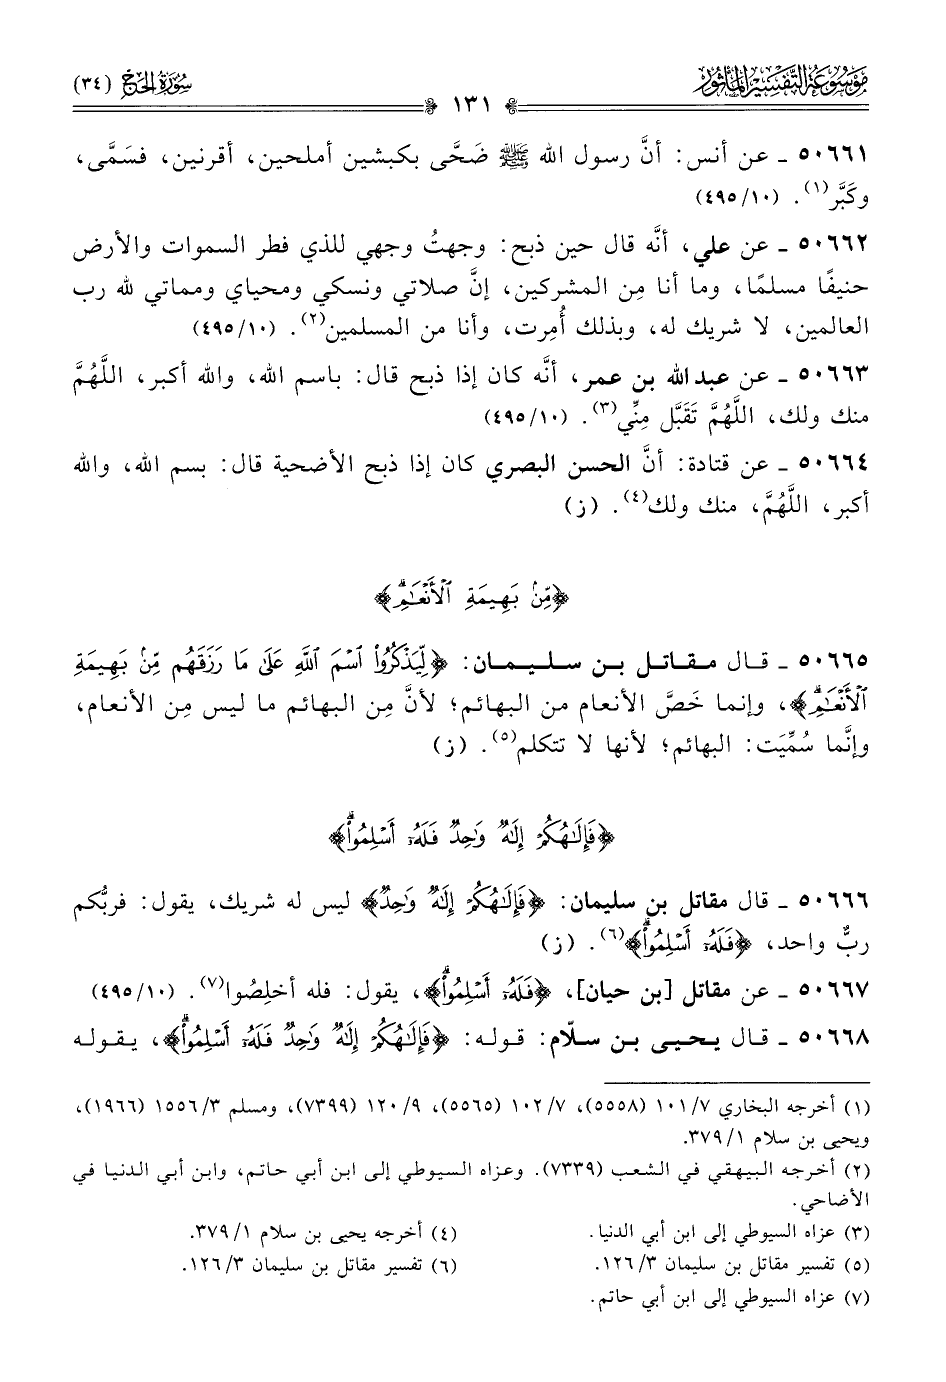 مَوْسُوعَةُ التَّفْسِيرِ المَأْثُور
١٣١
سُورَةُ الحَجّ (٣٤)
٥٠٦٦١ ـ عن أنس: أنَّ رسول الله ﷺ ضَحَّى بكبشين أملحين، أقرنين، فسَمَّى،
وكَبَّر(١). (١٠/ ٤٩٥)
٥٠٦٦٢ ـ عن علي، أنَّه قال حين ذبح: وجهتُ وجهي للذي فطر السموات والأرض
حنيفًا مسلمًا، وما أنا مِن المشركين، إنَّ صلاتي ونسكي ومحياي ومماتي لله رب
العالمين، لا شريك له، وبذلك أُمِرت، وأنا من المسلمين(٢). (١٠/ ٤٩٥)
٥٠٦٦٣ ـ عن عبد الله بن عمر، أنَّه كان إذا ذبح قال: باسم الله، والله أكبر، اللَّهُمَّ
منك ولك، اللَّهُمَّ تَقَبَّل مِنِّي(٣). (١٠/ ٤٩٥)
٥٠٦٦٤ ـ عن قتادة: أنَّ الحسن البصري كان إذا ذبح الأضحية قال: بسم الله، والله
أكبر، اللَّهُمَّ، منك ولك(٤). (ز)
﴿مِّنۢ بَهِيمَةِ ٱلْأَنْعَٰمِۗ﴾
٥٠٦٦٥ ـ قال مقاتل بن سليمان: ﴿لِّيَذْكُرُوا۟ ٱسْمَ ٱللَّهِ عَلَىٰ مَا رَزَقَهُم مِّنۢ بَهِيمَةِ
ٱلْأَنْعَٰمِۗ﴾، وإنما خَصَّ الأنعام من البهائم؛ لأنَّ مِن البهائم ما ليس مِن الأنعام،
وإنَّما سُمِّيَت: البهائم؛ لأنها لا تتكلم(٥). (ز)
﴿فَإِلَٰهُكُمْ إِلَٰهٌ وَٰحِدٌ فَلَهُۥٓ أَسْلِمُوا۟ۗ﴾
٥٠٦٦٦ ـ قال مقاتل بن سليمان: ﴿فَإِلَٰهُكُمْ إِلَٰهٌ وَٰحِدٌ﴾ ليس له شريك، يقول: فربُّكم
ربٌّ واحد، ﴿فَلَهُۥٓ أَسْلِمُوا۟ۗ﴾(٦). (ز)
٥٠٦٦٧ ـ عن مقاتل [بن حيان]، ﴿فَلَهُۥٓ أَسْلِمُوا۟ۗ﴾، يقول: فله أخلِصُوا(٧). (١٠/ ٤٩٥)
٥٠٦٦٨ ـ قال يحيى بن سلّام: قوله: ﴿فَإِلَٰهُكُمْ إِلَٰهٌ وَٰحِدٌ فَلَهُۥٓ أَسْلِمُوا۟ۗ﴾، يقوله
(١) أخرجه البخاري ٧/ ١٠١ (٥٥٥٨)، ٧/ ١٠٢ (٥٥٦٥)، ٩/ ١٢٠ (٧٣٩٩)، ومسلم ٣/ ١٥٥٦ (١٩٦٦)،
ويحيى بن سلام ١/ ٣٧٩.
(٢) أخرجه البيهقي في الشعب (٧٣٣٩). وعزاه السيوطي إلى ابن أبي حاتم، وابن أبي الدنيا في
الأضاحي.
(٣) عزاه السيوطي إلى ابن أبي الدنيا.
(٤) أخرجه يحيى بن سلام ١/ ٣٧٩.
(٥) تفسير مقاتل بن سليمان ٣/ ١٢٦.
(٦) تفسير مقاتل بن سليمان ٣/ ١٢٦.
(٧) عزاه السيوطي إلى ابن أبي حاتم.